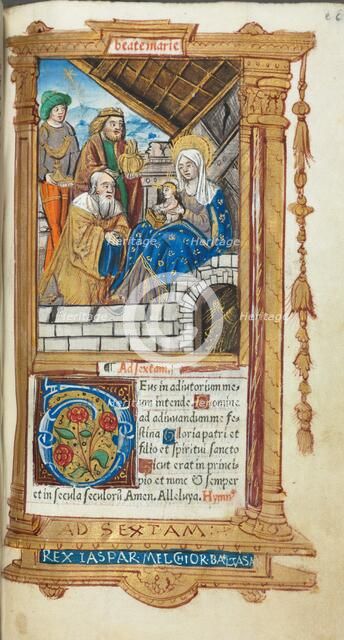 beatemarie
¶ Ad sextam.
Eus in adiutorium me
um intende. Domine
ad adiuvandum me fe
stina Gloria patri et
filio et spiritui sancto
Sicut erat in princi
pio et nunc & semper
et in secula seculorū Amen. Alleluya. Hymn9
AD SEXTAM
REX IASPAR MELCHIOR BALTASA
Heritage
Heritage
Heritage
Heritage
Heritage
Heritage